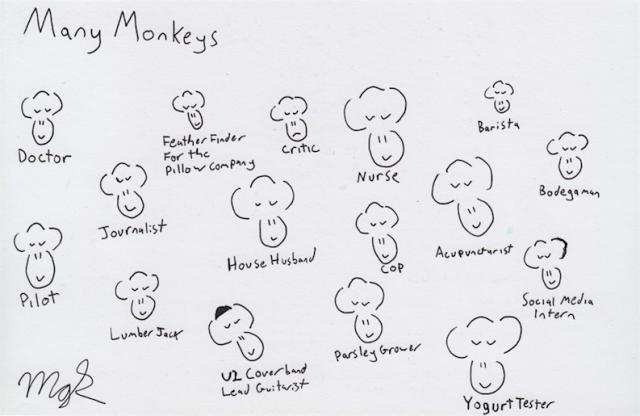 Many Monkeys
Doctor
Feather Finder
For the
Pillow Company
Critic
Nurse
Barista
Bodegaman
Journalist
House Husband
Cop
Acupuncturist
Pilot
Lumber Jack
U2 Coverband
Lead Guitarist
Parsley Grower
Social Media
Intern
Yogurt Tester